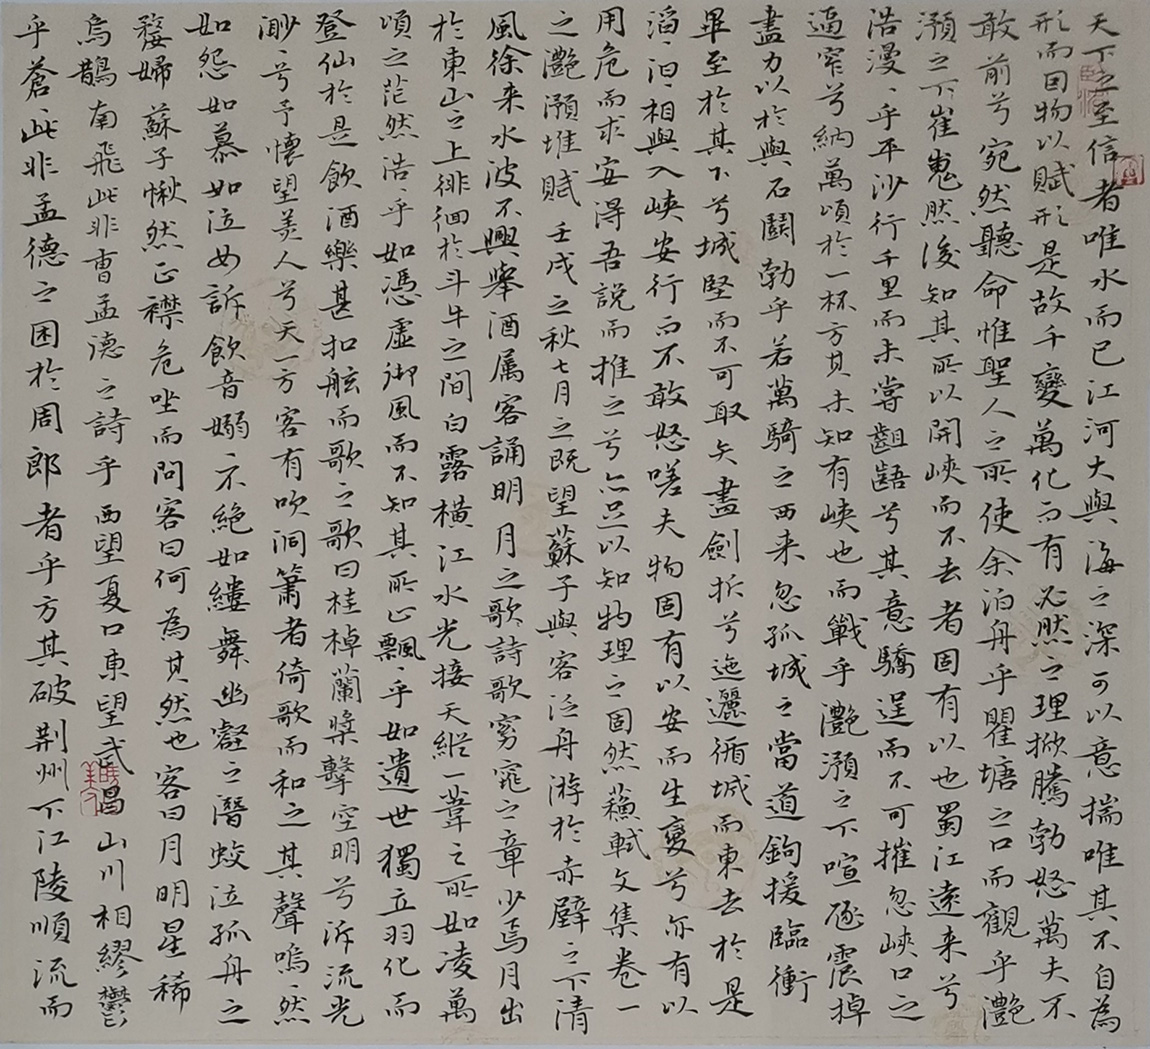 天下之至信者唯水而已江河大與海之深可以意揣唯其不自為
形而因物以賦形是故千變萬化而有必然之理掀騰勃怒萬夫不
敢前兮宛然聽命惟聖人之所使余泊舟乎瞿塘之口而觀乎灔
澦之下崔嵬然後知其所以開峽而不去者固有以也蜀江遠来兮
浩漫〻乎平沙行千里而未嘗齟齬兮其意驕逞而不可摧忽峽口之
逼窄兮納萬頃於一杯方其未知有峽也而戰乎灔澦之下喧豗震掉
盡力以於與石鬪勃乎若萬騎之西来忽孤城之當道鉤援臨衝
畢至於其下兮城堅而不可取矢盡劍折兮迤邐循城而東去於是
滔〻汩〻相與入峽安行而不敢怒嗟夫物固有以安而生變兮亦有以
用危而求安得吾說而推之兮亦足以知物理之固然蘇軾文集卷一
之灔澦堆賦 壬戌之秋七月之既望蘇子與客泛舟游於赤壁之下清
風徐来水波不興舉酒属客誦明月之歌詩歌窈窕之章少焉月出
於東山之上徘徊於斗牛之間白露橫江水光接天縱一葦之所如凌萬
頃之茫然浩〻乎如馮虛御風而不知其所止飄〻乎如遺世獨立羽化而
登仙於是飲酒樂甚扣舷而歌之歌曰桂棹蘭槳擊空明兮泝流光
渺〻兮予懷望美人兮天一方客有吹洞簫者倚歌而和之其聲嗚〻然
如怨如慕如泣如訴飲音嫋〻不絕如縷舞幽壑之潛蛟泣孤舟之
嫠婦蘇子愀然正襟危坐而問客曰何為其然也客曰月明星稀
烏鵲南飛此非曹孟德之詩乎西望夏口東望武昌山川相繆鬱
乎蒼〻此非孟德之困於周郎者乎方其破荆州下江陵順流而